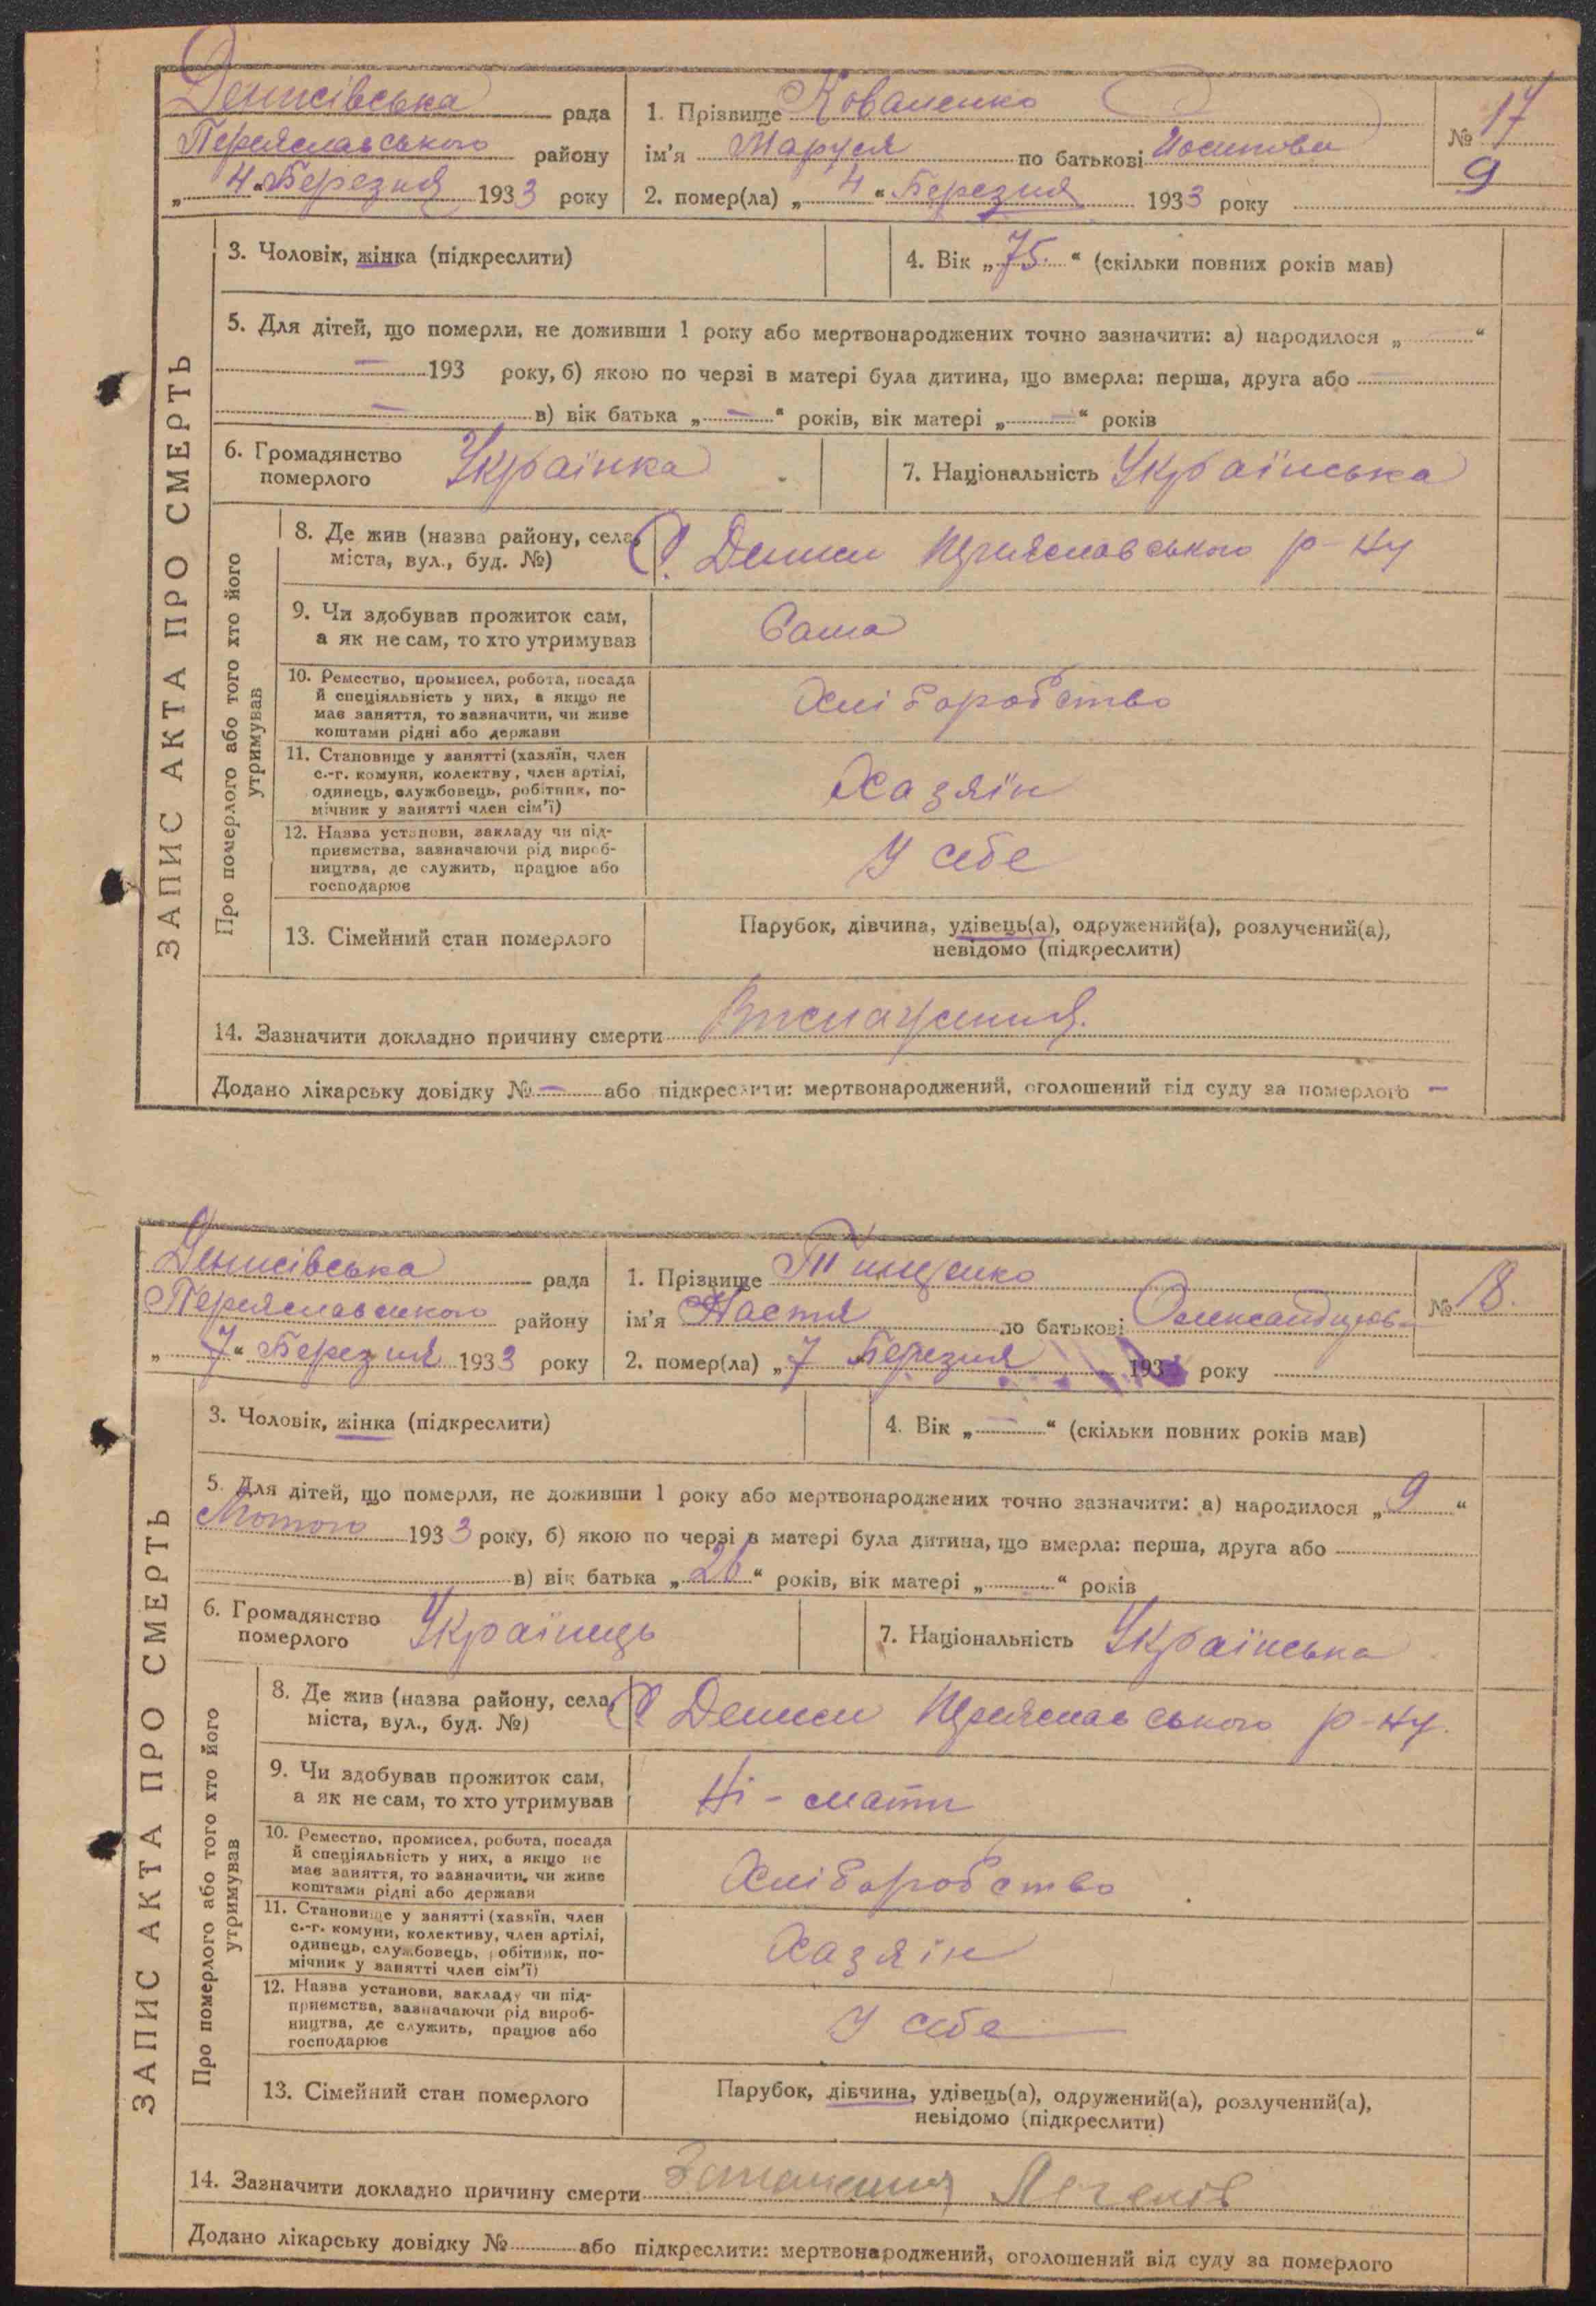 Денисівська рада
Переяславського району
„ 4 “ Березня 1933 року
1. Прізвище Коваленко
ім'я Маруся по батькові Йосипова
2. помер(ла) „ 4 “ Березня 1933 року
№ 17
9
ЗАПИС АКТА ПРО СМЕРТЬ
3. Чоловік, жінка (підкреслити)
4. Вік „ 75. “ (скільки повних років мав)
5. Для дітей, що померли, не доживши 1 року або мертвонароджених точно зазначити: а) народилося „ — “
— 193 року, б) якою по черзі в матері була дитина, що вмерла: перша, друга або —
— в) вік батька „ — “ років, вік матері „ — “ років
6. Громадянство
померлого Українка
7. Національність Українська
Про померлого або того хто його
утримував
8. Де жив (назва району, села,
міста, вул., буд. №)
С. Дениси Переяславського р-ну
9. Чи здобував прожиток сам,
а як не сам, то хто утримував
Сама
10. Ремество, промисел, робота, посада
й спеціяльність у них, а якщо не
має заняття, то зазначити, чи живе
коштами рідні або держави
Хліборобство
11. Становище у занятті (хазяїн, член
с.-г. комуни, колектву, член артілі,
одинець, службовець, робітник, по-
мічник у занятті член сім'ї)
Хазяїн
12. Назва установи, закладу чи під-
приємства, зазначаючи рід вироб-
ництва, де служить, працює або
господарює
У себе
13. Сімейний стан померлого
Парубок, дівчина, удівець(а), одружений(а), розлучений(а),
невідомо (підкреслити)
14. Зазначити докладно причину смерти Виснаження.
Додано лікарську довідку № — або підкреслити: мертвонароджений, оголошений від суду за померлого —
Денисівська рада
Переяславського району
„ 7 “ Березня 1933 року
1. Прізвище Тищенко
ім'я Настя по батькові Олександров
2. помер(ла) „ 7 Березня 193 року
№ 18.
ЗАПИС АКТА ПРО СМЕРТЬ
3. Чоловік, жінка (підкреслити)
4. Вік „ — “ (скільки повних років мав)
5. Для дітей, що померли, не доживши 1 року або мертвонароджених точно зазначити: а) народилося „ 9 “
Лютого 1933 року, б) якою по черзі в матері була дитина, що вмерла: перша, друга або
в) вік батька „ 26 “ років, вік матері „ “ років
6. Громадянство
померлого Українець
7. Національність Українська
Про померлого або того хто його
утримував
8. Де жив (назва району, села,
міста, вул., буд. №)
С. Дениси Переяславського р-ну.
9. Чи здобував прожиток сам,
а як не сам, то хто утримував
Ні - мати
10. Ремество, промисел, робота, посада
й спеціяльність у них, а якщо не
має заняття, то зазначити, чи живе
коштами рідні або держави
Хліборобство
11. Становище у занятті (хазяїн, член
с.-г. комуни, колективу, член артілі,
одинець, службовець, робітник, по-
мічник у занятті член сім'ї)
Хазяїн
12. Назва установи, закладу чи під-
приємства, зазначаючи рід вироб-
ництва, де служить, працює або
господарює
У себе
13. Сімейний стан померлого
Парубок, дівчина, удівець(а), одружений(а), розлучений(а),
невідомо (підкреслити)
14. Зазначити докладно причину смерти Запалення Легенів
Додано лікарську довідку № або підкреслити: мертвонароджений, оголошений від суду за померлого